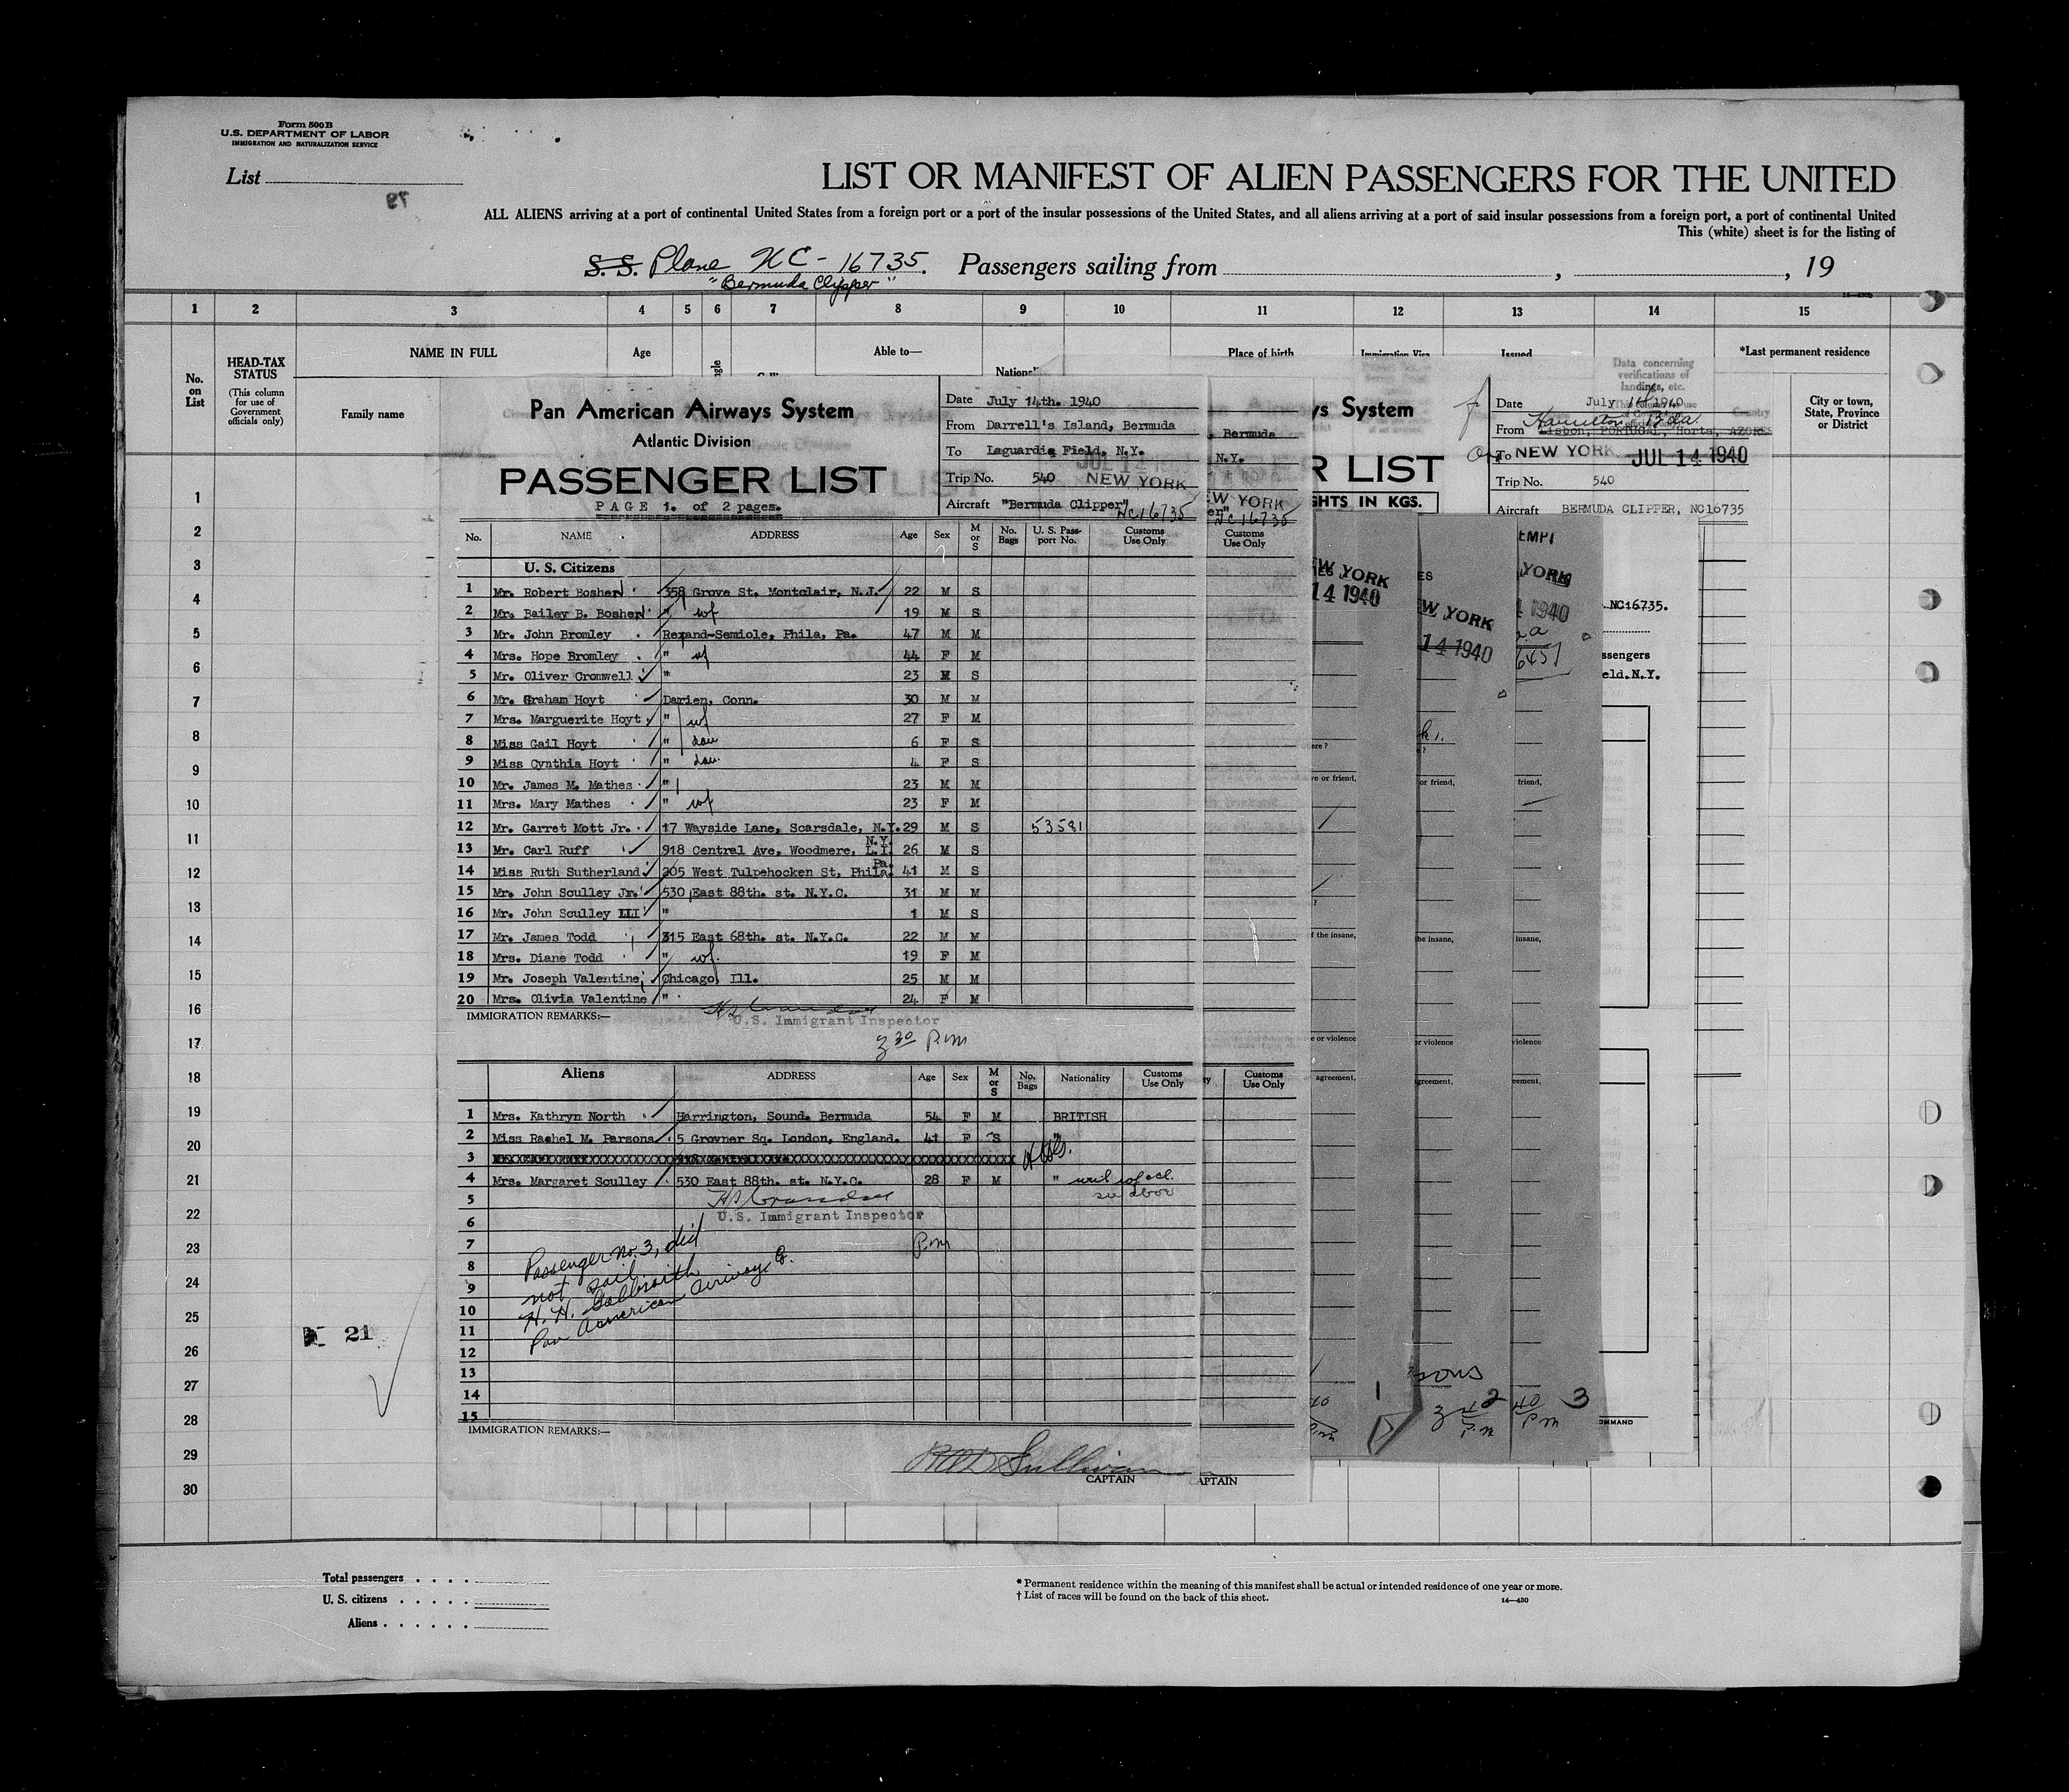 Form 500B
U.S. DEPARTMENT OF LABOR
IMMIGRATION AND NATURALIZATION SERVICE
List
LIST OR MANIFEST OF ALIEN PASSENGERS FOR THE UNITED
ALL ALIENS arriving at a port of continental United States from a foreign port or a port of the insular possessions of the United States, and all aliens arriving at a port of said insular possessions from a foreign port, a port of continental United
This (white) sheet is for the listing of
S. S. Plane NC-16735. Passengers sailing from , , 19
"Bermuda Clipper"
1 2 3 4 5 6 7 8 9 10 11 12 13 14 15
No. on List
HEAD-TAX STATUS
(This column for use of Government officials only)
NAME IN FULL
Family name
Age
Able to—
Place of birth
Issued
Data concerning verifications of landings, etc.
*Last permanent residence
City or town, State, Province or District
Pan American Airways System
Atlantic Division
PASSENGER LIST
PAGE 1. of 2 pages.
Date July 14th. 1940
From Darrell's Island, Bermuda
To Laguardia Field, N.Y.
JUL 14
Trip No. 540 NEW YORK
Aircraft "Bermuda Clipper" NC16735
No. NAME ADDRESS Age Sex M or S No. Bags U. S. Passport No. Customs Use Only
U. S. Citizens
1 Mr. Robert Bosher 358 Grove St. Montclair, N.J. 22 M S
2 Mr. Bailey B. Bosher " wf 19 M S
3 Mr. John Bromley Rexand-Semiole, Phila, Pa. 47 M M
4 Mrs. Hope Bromley " wf 44 F M
5 Mr. Oliver Cromwell " 23 M S
6 Mr. Graham Hoyt Darien, Conn. 30 M M
7 Mrs. Marguerite Hoyt " wf 27 F M
8 Miss Gail Hoyt " dau 6 F S
9 Miss Cynthia Hoyt " dau. 4 F S
10 Mr. James M. Mathes " 23 M M
11 Mrs. Mary Mathes " wf 23 F M
12 Mr. Garret Mott Jr. 17 Wayside Lane, Scarsdale, N.Y. 29 M S 53581
13 Mr. Carl Ruff 918 Central Ave, Woodmere, L.I. N.Y. 26 M S
14 Miss Ruth Sutherland 205 West Tulpehocken St, Phila. Pa. 41 M S
15 Mr. John Sculley Jr. 530 East 88th. st. N.Y.C. 31 M M
16 Mr. John Sculley III " 1 M S
17 Mr. James Todd 315 East 68th. st. N.Y.C. 22 M M
18 Mrs. Diane Todd " wf. 19 F M
19 Mr. Joseph Valentine Chicago, Ill. 25 M M
20 Mrs. Olivia Valentine " 24 F M
IMMIGRATION REMARKS:—
U.S. Immigrant Inspector
3 30 P.m
Aliens ADDRESS Age Sex M or S No. Bags Nationality Customs Use Only
1 Mrs. Kathryn North Harrington, Sound. Bermuda 54 F M BRITISH
2 Miss Rachel M. Parsons 5 Grovner Sq. London, England. 41 F S "
3
4 Mrs. Margaret Sculley 530 East 88th. st. N.Y.C. 28 F M "
see above
5
U.S. Immigrant Inspector
6
7 P.m
8
9
10
11
12
13
14
15
Passenger no. 3, did
not sail
H. H. Galbraith
Pan American Airways Co.
IMMIGRATION REMARKS:—
Sullivan
CAPTAIN
, Bermuda
N.Y.
EW YORK
NC16735
Customs Use Only
Customs Use Only
CAPTAIN
ys System
R LIST
GHTS IN KGS.
Date July 14 1940
Hamilton, Bda.
From Lisbon, PORTUGAL, Horta, AZORES
To NEW YORK JUL 14 1940
Trip No. 540
Aircraft BERMUDA CLIPPER, NC16735
EW YORK
14 1940
W YORK
14 1940
YORK
1940
NC16735.
ssengers
eld.N.Y.
or friend,
friend,
f the insane,
the insane,
insane,
e or violence
or violence
violence
agreement,
greement,
eement,
sons
1
2
3
OMMAND
1
2
3
4
5
6
7
8
9
10
11
12
13
14
15
16
17
18
19
20
21
22
23
24
25
26
27
28
29
30
21
Total passengers . . . .
U. S. citizens . . . . .
Aliens . . . . . .
* Permanent residence within the meaning of this manifest shall be actual or intended residence of one year or more.
† List of races will be found on the back of this sheet.
14—430